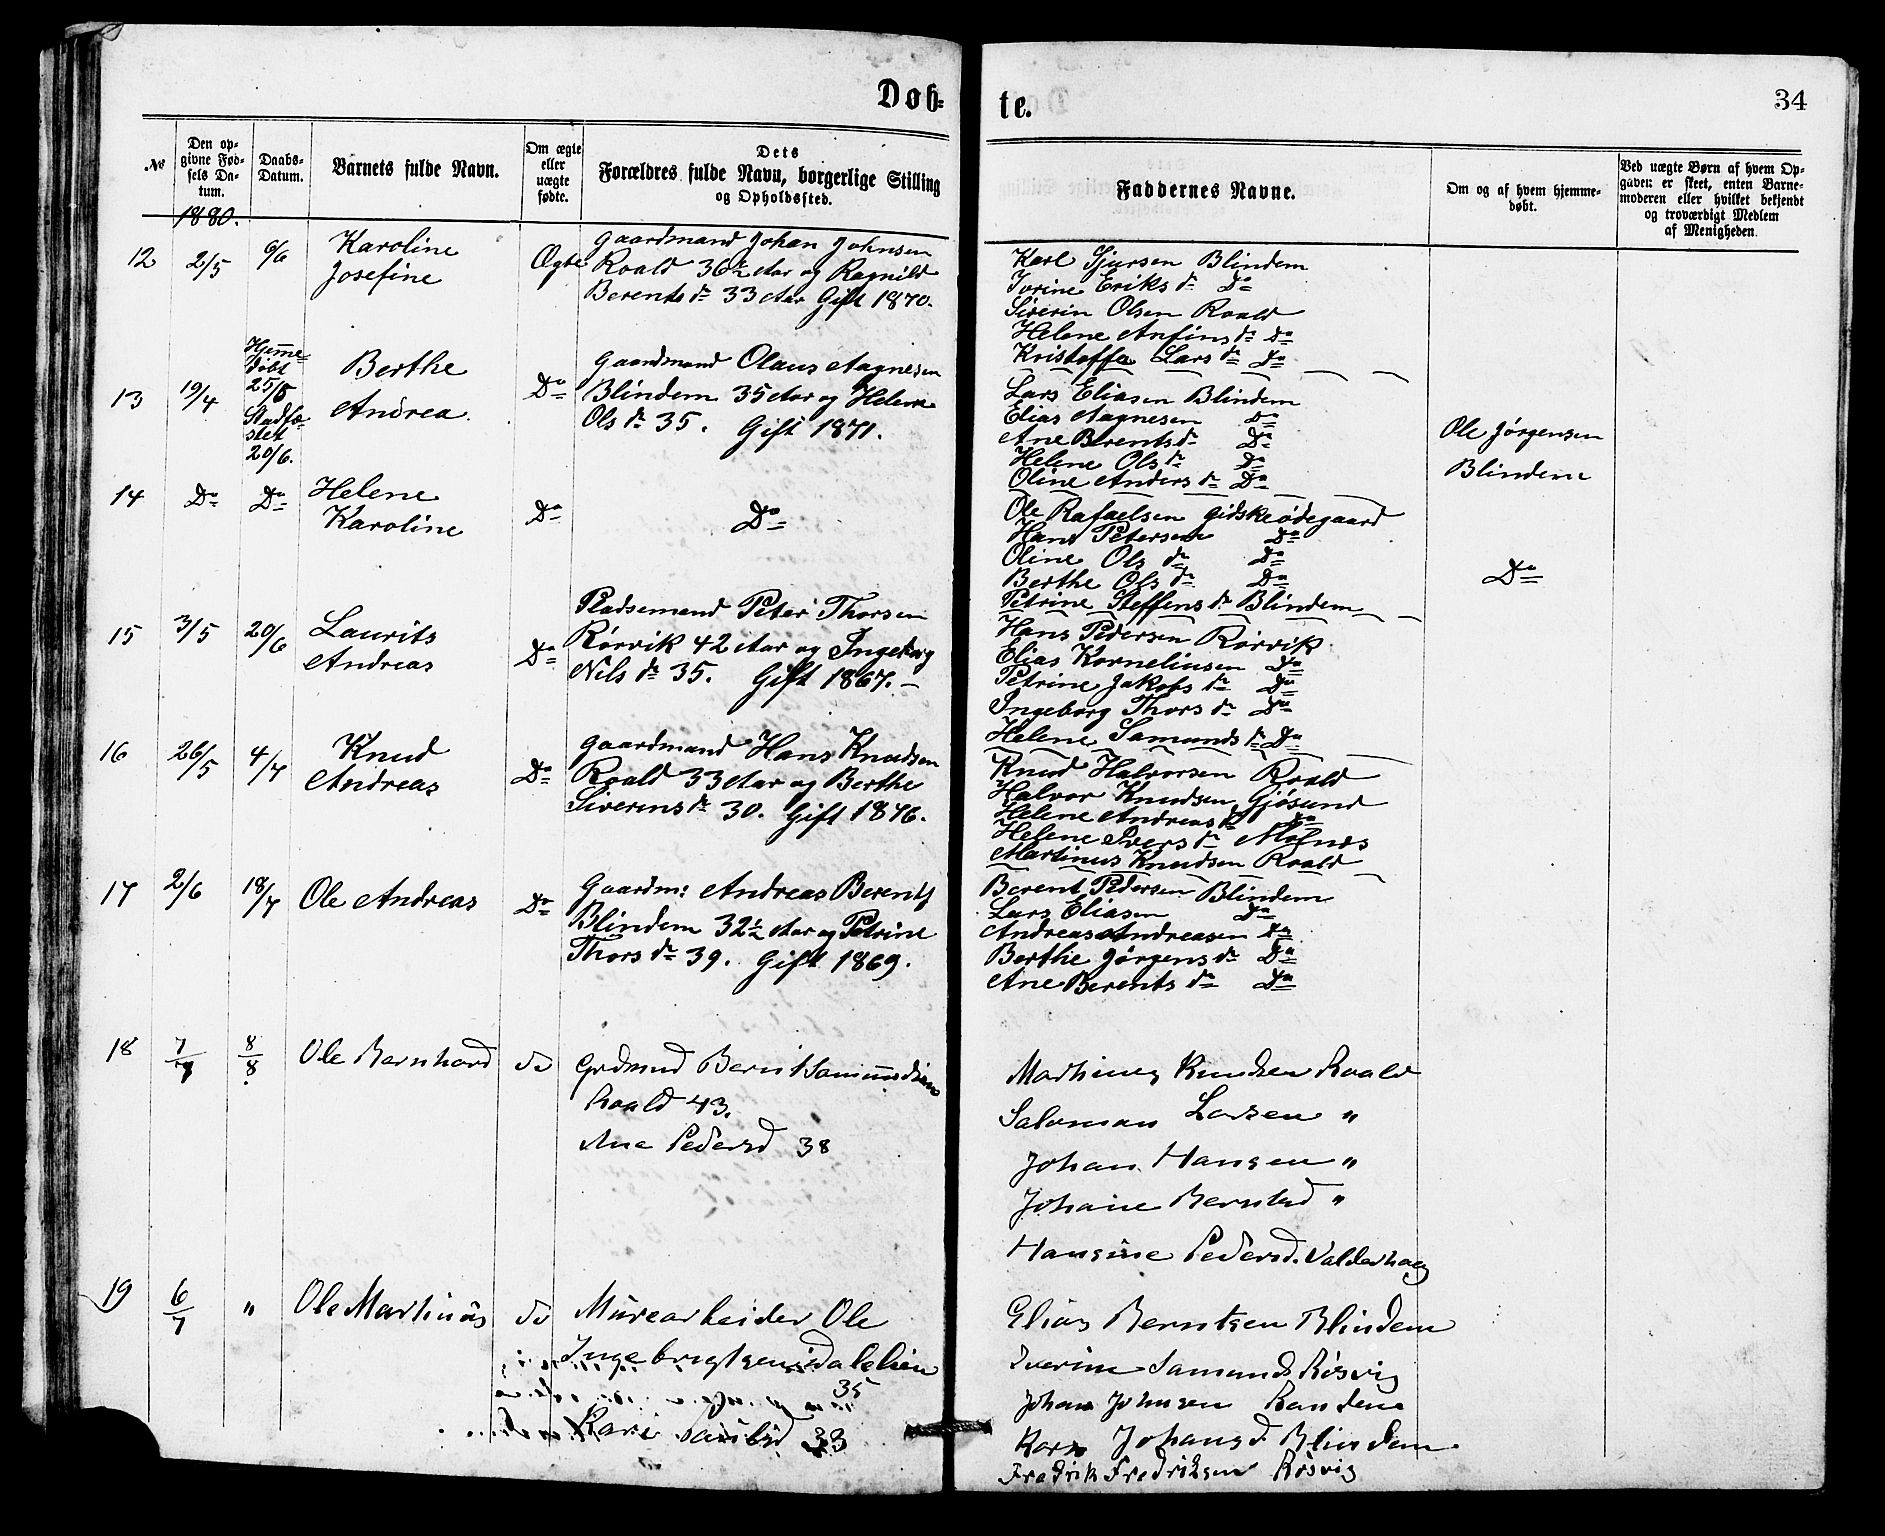 Døb-
te.
34
№
Den op-
givne Fød-
sels Da-
tum.
Daabs-
Datum.
Barnets fulde Navn.
Om ægte
eller
uægte
fødte.
Dets
Forældres fulde Navn, borgerlige Stilling
og Opholdssted.
Faddernes Navne.
Om og af hvem hjemme-
døbt.
Ved uægte Børn af hvem Op-
gaven er skeet, enten Barne-
moderen eller hvilket bekjendt
og troværdigt Medlem
af Menigheden.
1880.
12 2/5 6/6 Karoline
Josefine
Ægte
Gaardmand Johan Johnsen
Roald 36½ Aar og Ragnild
Berents dr 33 Aar Gift 1870.
Karl Sjursen Blindem
Jorine Eriks dr Do
Siverin Olsen Roald
Helene Anfins dr Do
Kristoffa Lars dr Do
13 19/4 Hjemme-
døbt
25/5
Stadfæ-
stet
20/6.
Berthe
Andrea.
Do
Gaardmand Olaus Aagnesen
Blindem 35 Aar og Helene
Ols dr 35. Gift 1871.
Lars Eliasen Blindem
Elias Aagnesen Do
Ane Berents dr Do
Helene Ols dr Do
Oline Anders dr Do
Ole Jørgensen
Blindem
14 Do Do Helene
Karoline
Do
Do
Ole Rafaelsen Gidskeødegaard
Hans Petersen Do
Oline Ols dr Do
Berthe Ols dr Do
Petrine Steffens dr Blindem
Do
15 3/5 20/6 Laurits
Andreas
Do
Pladsemand Peter Thorsen
Rørvik 42 Aar og Ingeborg
Nils dr 35. Gift 1867. –
Hans Pedersen Rørvik
Elias Korneliusen Do
Petrine Jakobs dr Do
Ingeborg Thors dr Do
Helene Samunds dr Do
16 26/5 4/7 Knud
Andreas
Do
Gaardmand Hans Knudsen
Roald 33 Aar og Berthe
Siverins dr 30. Gift 1876.
Knud Halvorsen Roald
Halvor Knudsen Gjøsund
Helene Andreas dr Do
Helene Ivers dr Molnes
Martinus Knudsen Roald
17 2/6 18/7 Ole Andreas
Do
Gaardm: Andreas Berents
Blindem 32½ Aar og Petrine
Thors dr 39. Gift 1869.
Berent Pedersen Blindem
Lars Eliasen Do
Andreas Andreasen Do
Berthe Jørgens dr Do
Ane Berents dr Do
18 7/7 8/8 Ole Bernhard
do
Grdmnd Bernt Samundsen
Roald 43.
Ane Pedersd 38
Martinus Knudsen Roald
Saloman Larsen "
Johan Hansen "
Johanne Berntsd "
Hansine Pedersd. Valderhaug
19 6/7 " Ole Martinus
do
Murearbeider Ole
Ingebrigtsen Dalelien
35
Kari 33
Elias Berntsen Blindem
Iverine Samunds Røsvig
Johan Johnsen Randem
Karn Johansd Blindem
Fredrik Fredriksen Røsvig